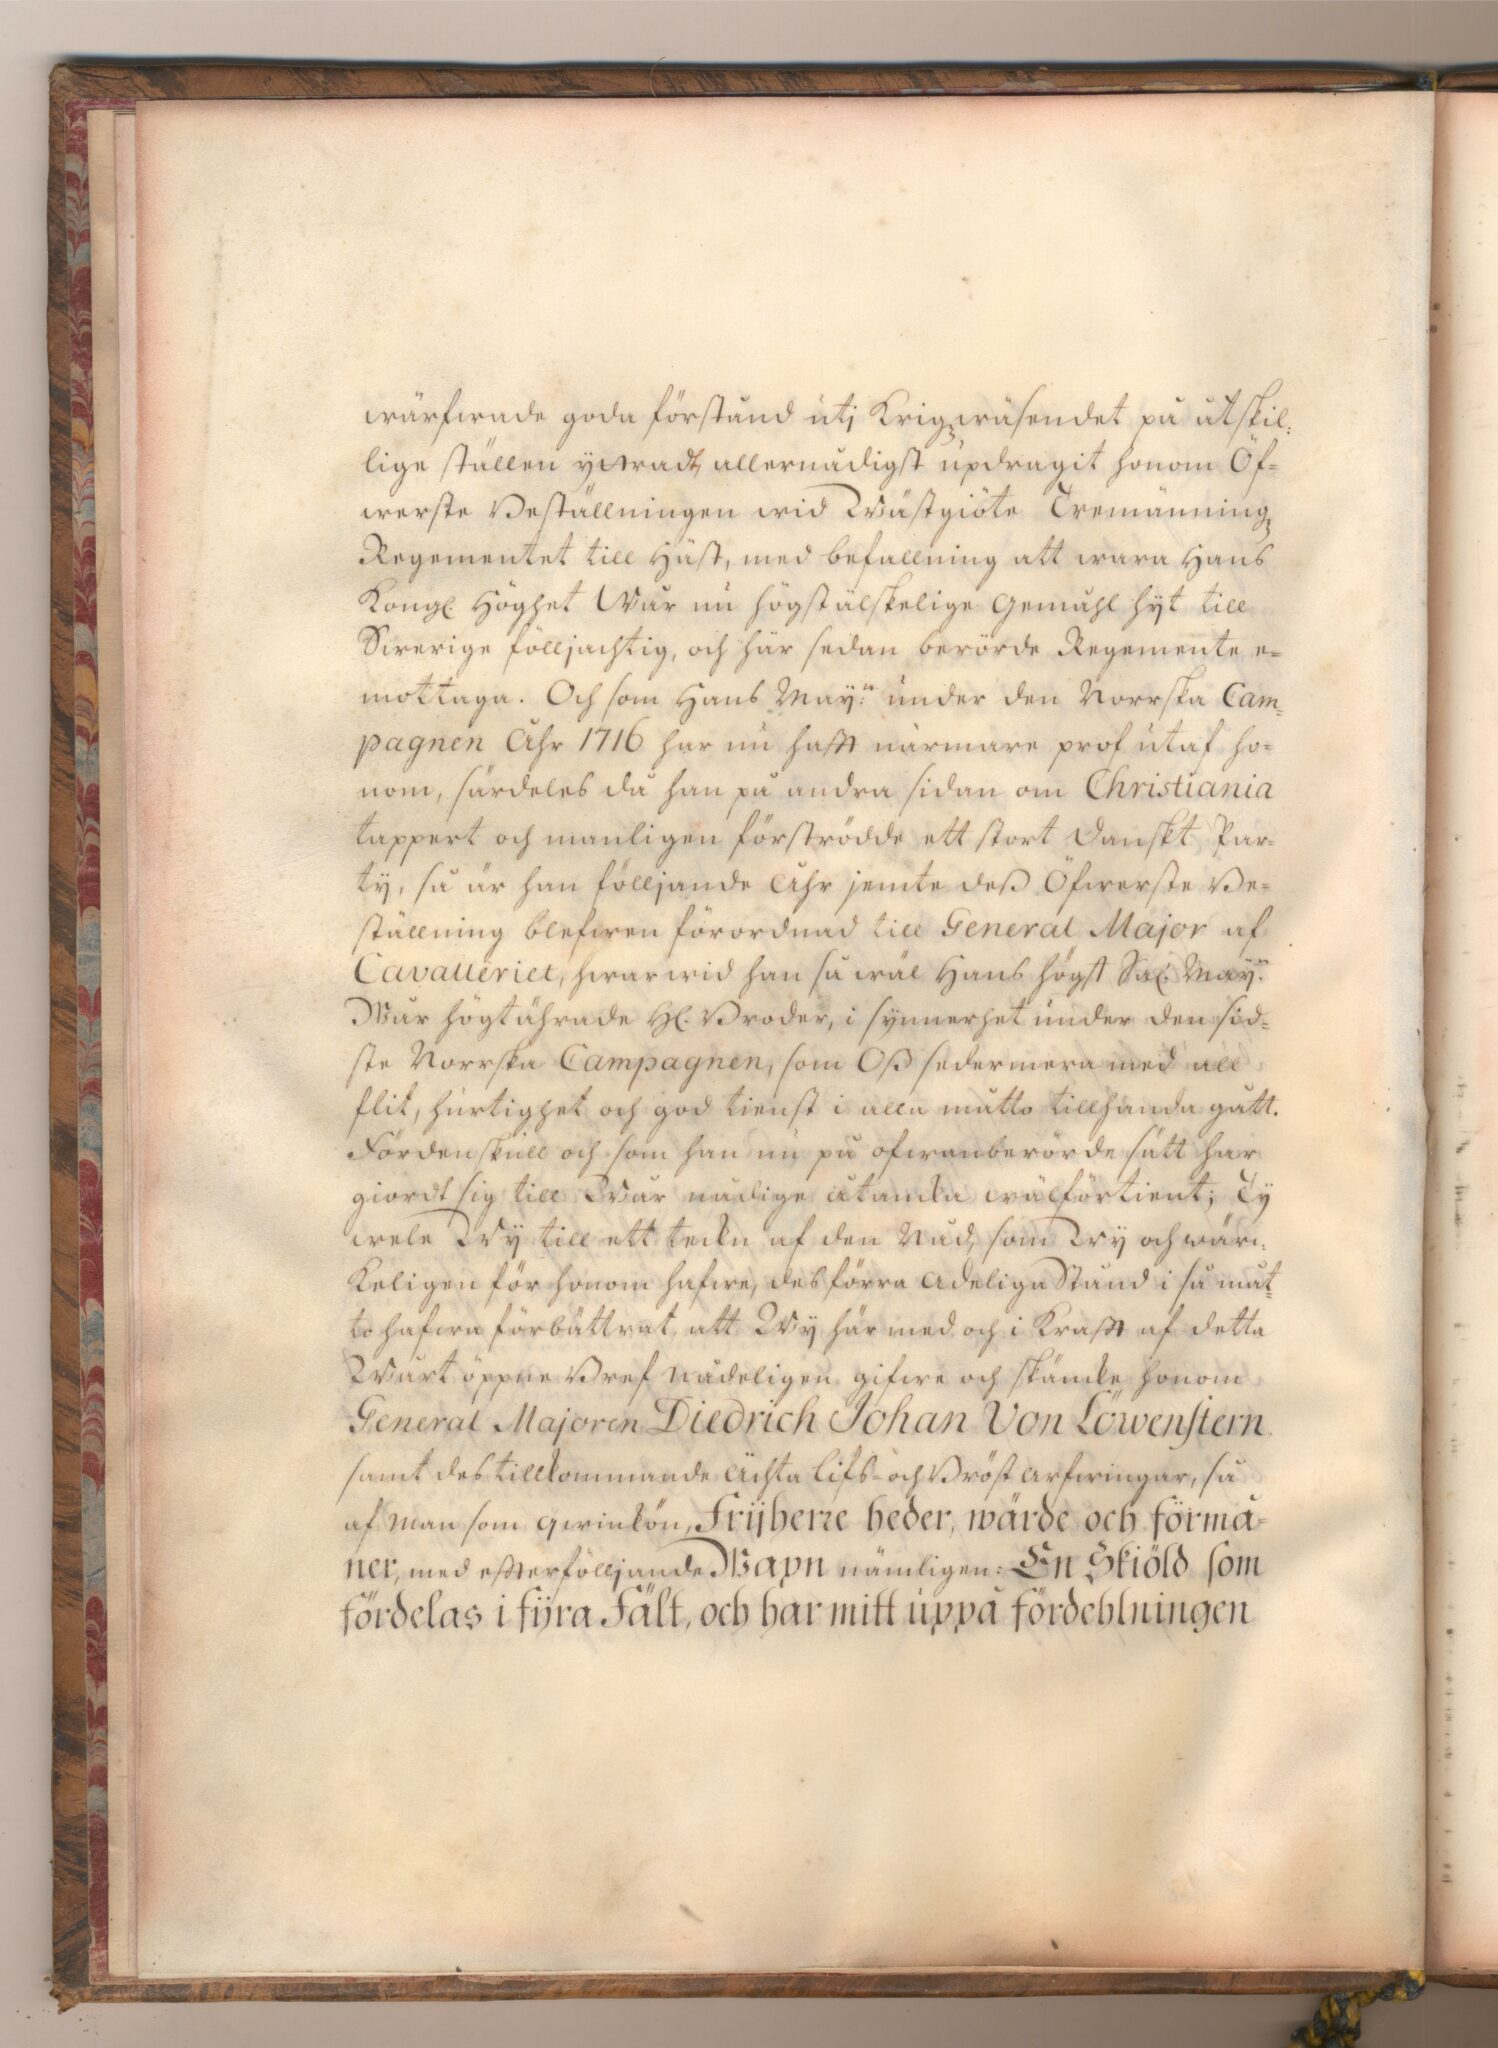 wärfwade goda förstånd uti Krigzwäsendet på åtskil-
lige ställen yttradt, allernådigst updragit honom Öf-
werste Beställningen wid Wästgiöte Tremänning
Regementet till Häst, med befallning att wara Hans
Kongl. Höghet Wår nu högstälskelige Gemåhl hijt till
Swerige följachtig, och här sedan berörde Regemente e-
mottaga. Och som Hans May:tt under den Norrska Cam-
pagnen Åhr 1716 har nu hafft närmare prof utaf ho-
nom, särdeles då han på andra sidan om Christiania
tappert och manligen förströdde ett stort Danskt Par-
tij, så är han fölljande Åhr jemte deß Öfwerste Be-
ställning blefwen förordnad till General Major af
Cavalleriet, hwarwid han så wäl Hans högst Sal. May:tt
Wår högtährade H. Broder, i synnerhet under den sid-
ste Norrska Campagnen, som Oß sedermera med all
flit, hurtighet och god tienst i alla måtto tillhanda gått.
Fördenskull och som han nu på ofwanberörde sätt har
giordt sig till Wår nådige åtancka wälförtient; Ty
wele Wy till ett teckn af den Nåd, som Wy och wärc-
keligen för honom hafwe, des förra Adeliga Stånd i så måt-
to hafwa förbättrat, att Wy här med och i Krafft af detta
Wårt öppne Bref Nådeligen gifwe och skäncke honom
General Majoren Diedrich Johan Von Löwenstern
samt des tillkommande Ächta Lifs- och Bröst Arfwingar, så
af Man som Qwinkön, Frijherre heder, wärde och förmå-
ner, med effterfölljande Wapn nämligen: En Skiöld som
fördelas i fyra Fält, och har mitt uppå fördehlningen